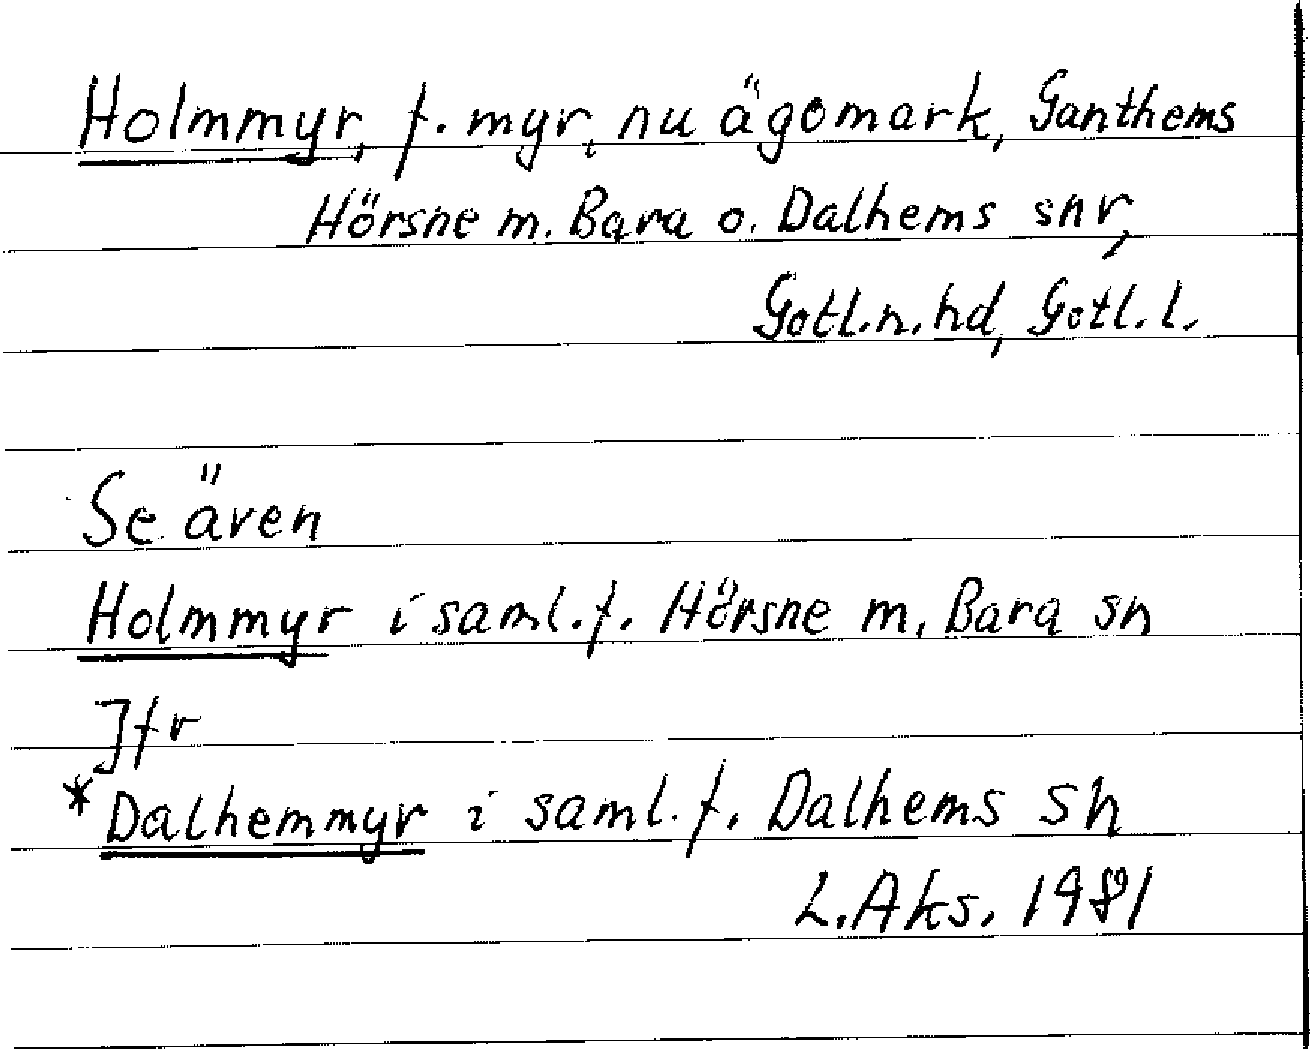 Holmmyr, f. myr, nu ägomark, Ganthems
Hörsne m. Bara o. Dalhems snr,
Gotl.n.hd, Gotl.l.
Se även
Holmmyr i saml.f. Hörsne m. Bara sn
Jfr
*Dalhemmyr i saml.f. Dalhems sn
L.Aks. 1981